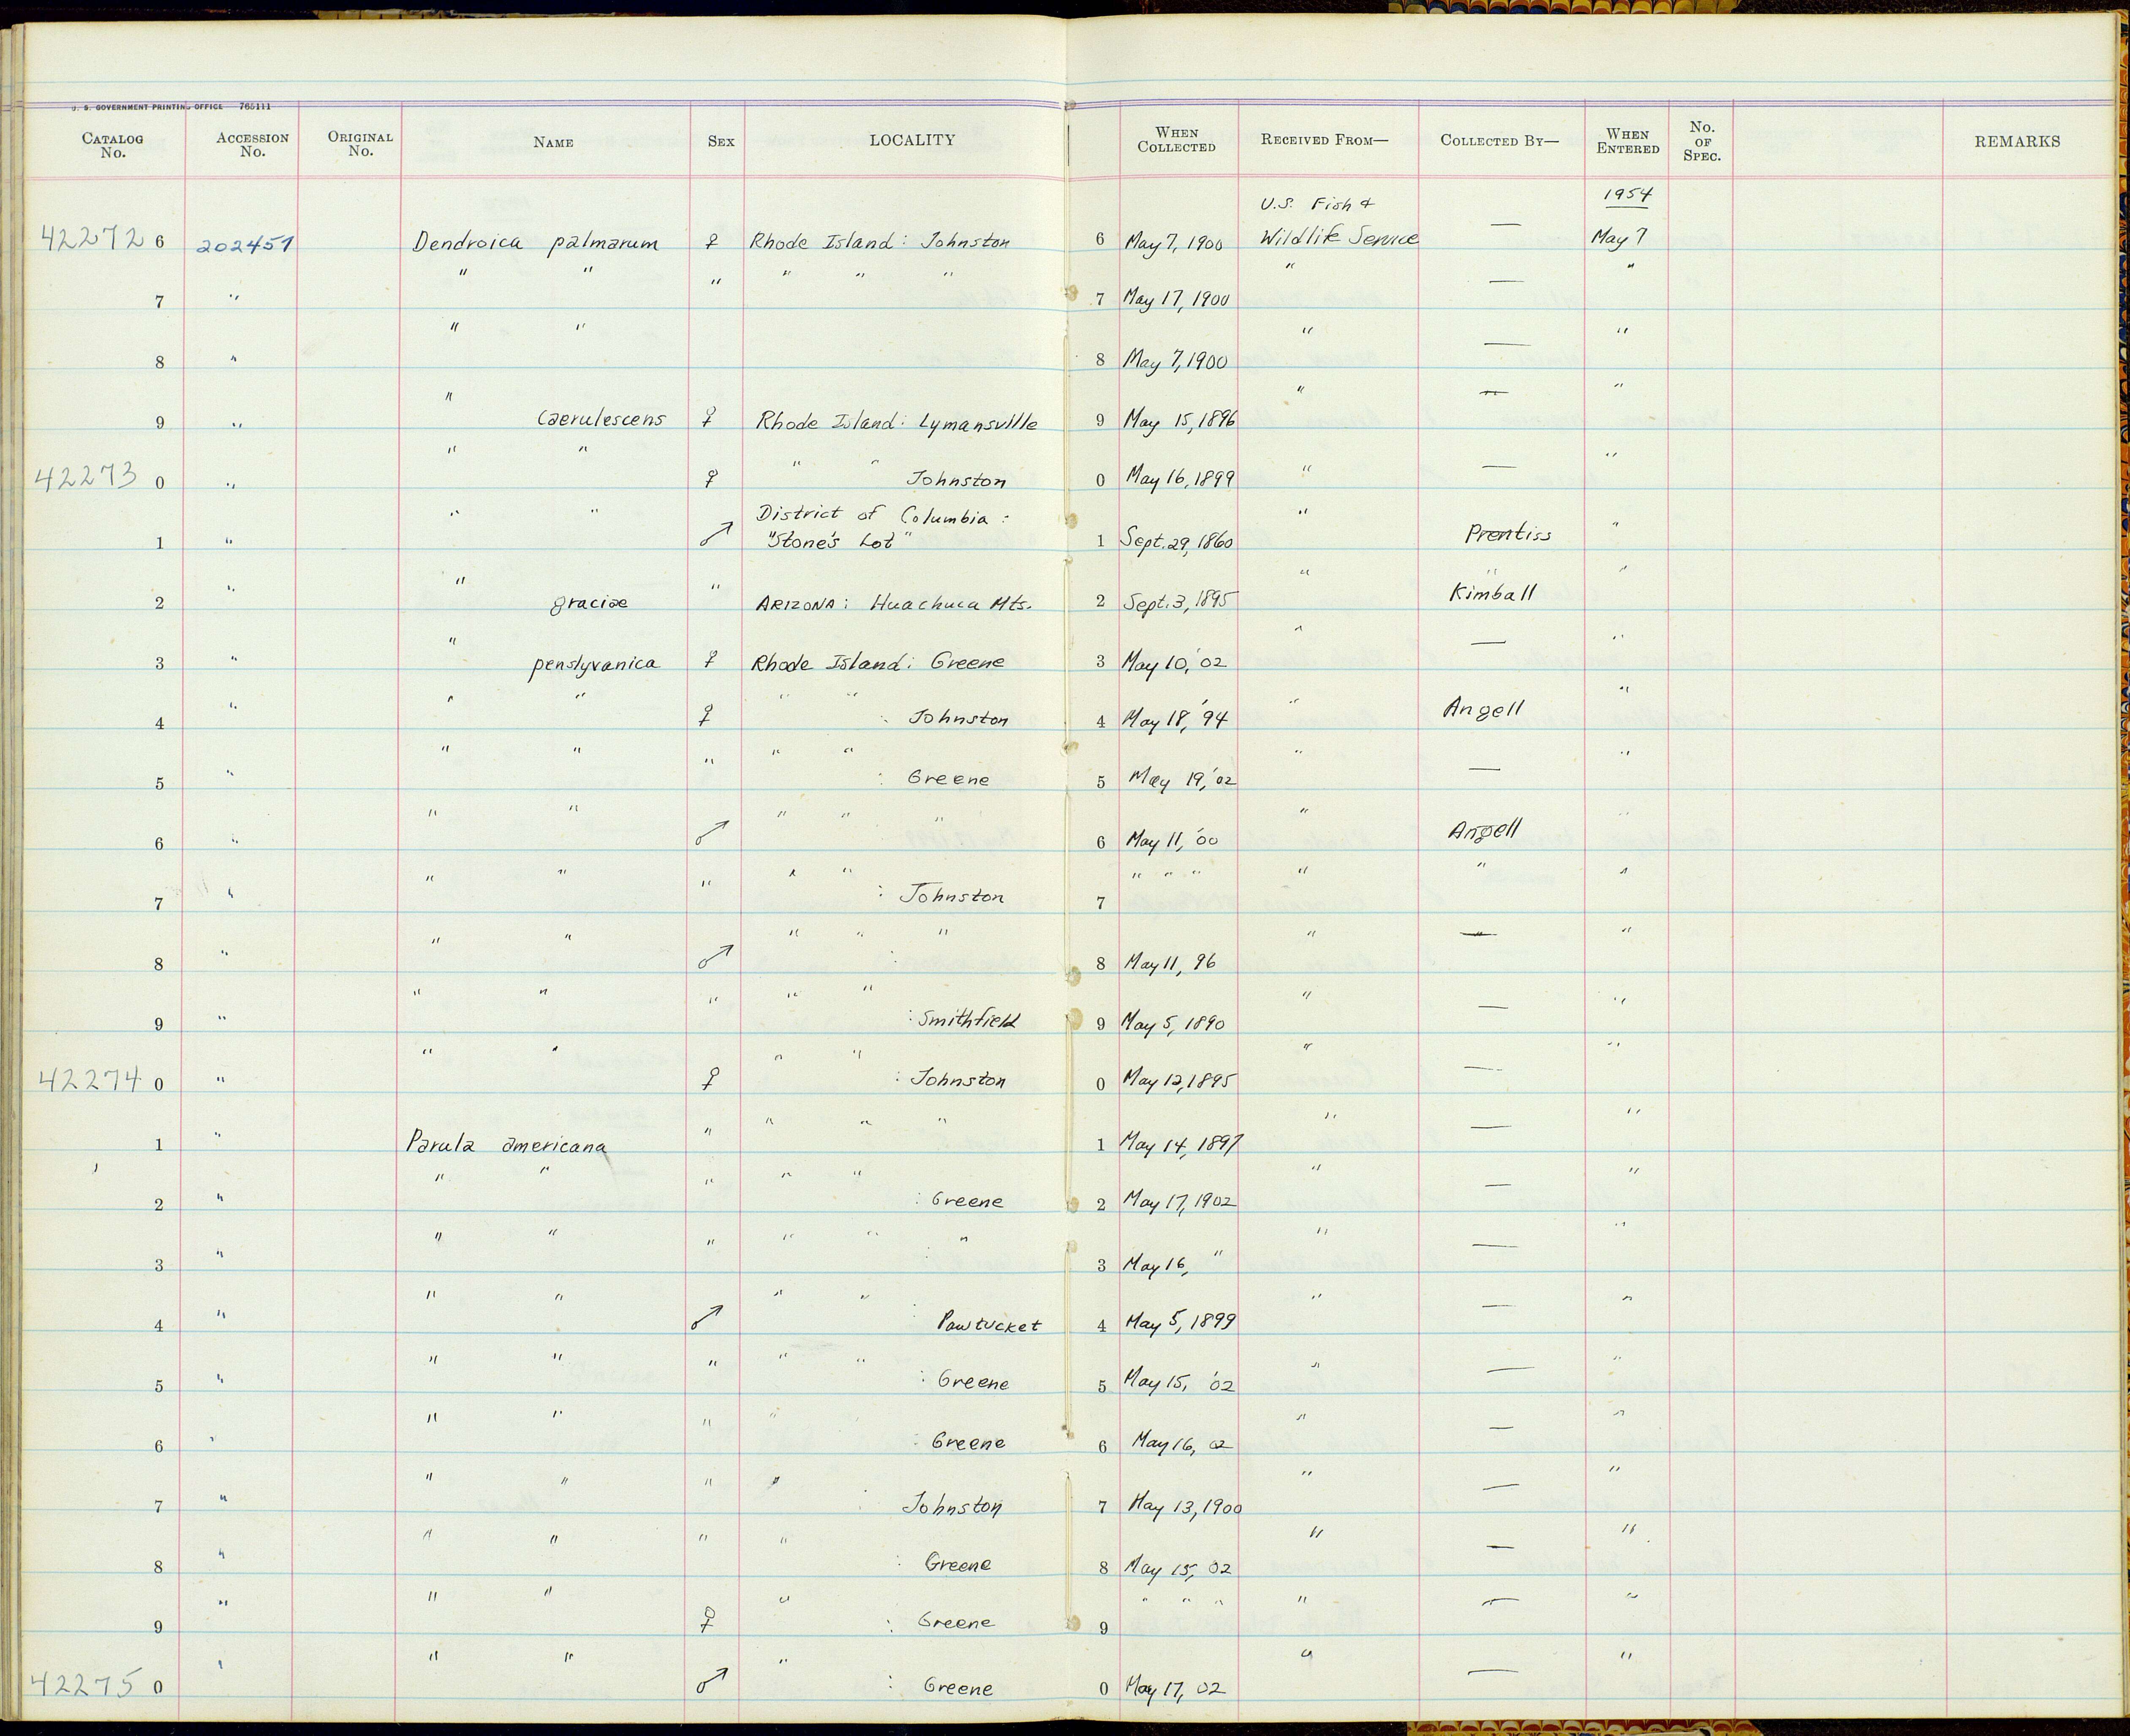 U. S. GOVERNMENT PRINTING OFFICE 765111
CATALOG No. ACCESSION No. ORIGINAL No. NAME SEX LOCALITY WHEN COLLECTED RECEIVED FROM— COLLECTED BY— WHEN ENTERED NO. OF SPEC. REMARKS
U.S. Fish & 1954
42272 6 202451 Dendroica palmarum ♀ Rhode Island: Johnston 6 May 7, 1900 Wildlife Service — May 7
7 " " " " " " " 7 May 17, 1900 " — "
8 " " " 8 May 7, 1900 " — "
9 " " caerulescens ♀ Rhode Island: Lymansville 9 May 15, 1896 " — "
42273 0 " " " ♀ " " Johnston 0 May 16, 1899 " — "
District of Columbia:
1 " " " ♂ "Stone's Lot" 1 Sept. 29, 1860 " Prentiss "
2 " " graciae " ARIZONA: Huachuca Mts. 2 Sept. 3, 1895 " Kimball "
3 " " penslyvanica ♀ Rhode Island: Greene 3 May 10, '02 " — "
4 " " " ♀ " " : Johnston 4 May 18, '94 " Angell "
5 " " " " " " : Greene 5 May 19, '02 " — "
6 " " " ♂ " " " 6 May 11, '00 " Angell "
7 " " " " " " : Johnston 7 " " " " " "
8 " " " ♂ " " : " 8 May 11, 96 " — "
9 " " " " " " : Smithfield 9 May 5, 1890 " — "
42274 0 " " " ♀ " " : Johnston 0 May 12, 1895 " — "
1 " Parula americana " " " " 1 May 14, 1897 " — "
2 " " " " " " : Greene 2 May 17, 1902 " — "
3 " " " " " " : " 3 May 16, " " — "
4 " " " ♂ " " : Pawtucket 4 May 5, 1899 " — "
5 " " " " " " : Greene 5 May 15, '02 " — "
6 " " " " " : Greene 6 May 16, 02 " — "
7 " " " " " : Johnston 7 May 13, 1900 " — "
8 " " " " " : Greene 8 May 15, 02 " — "
9 " " " ♀ " : Greene 9 " " " " — "
42275 0 " " " ♂ " : Greene 0 May 17, 02 " — "